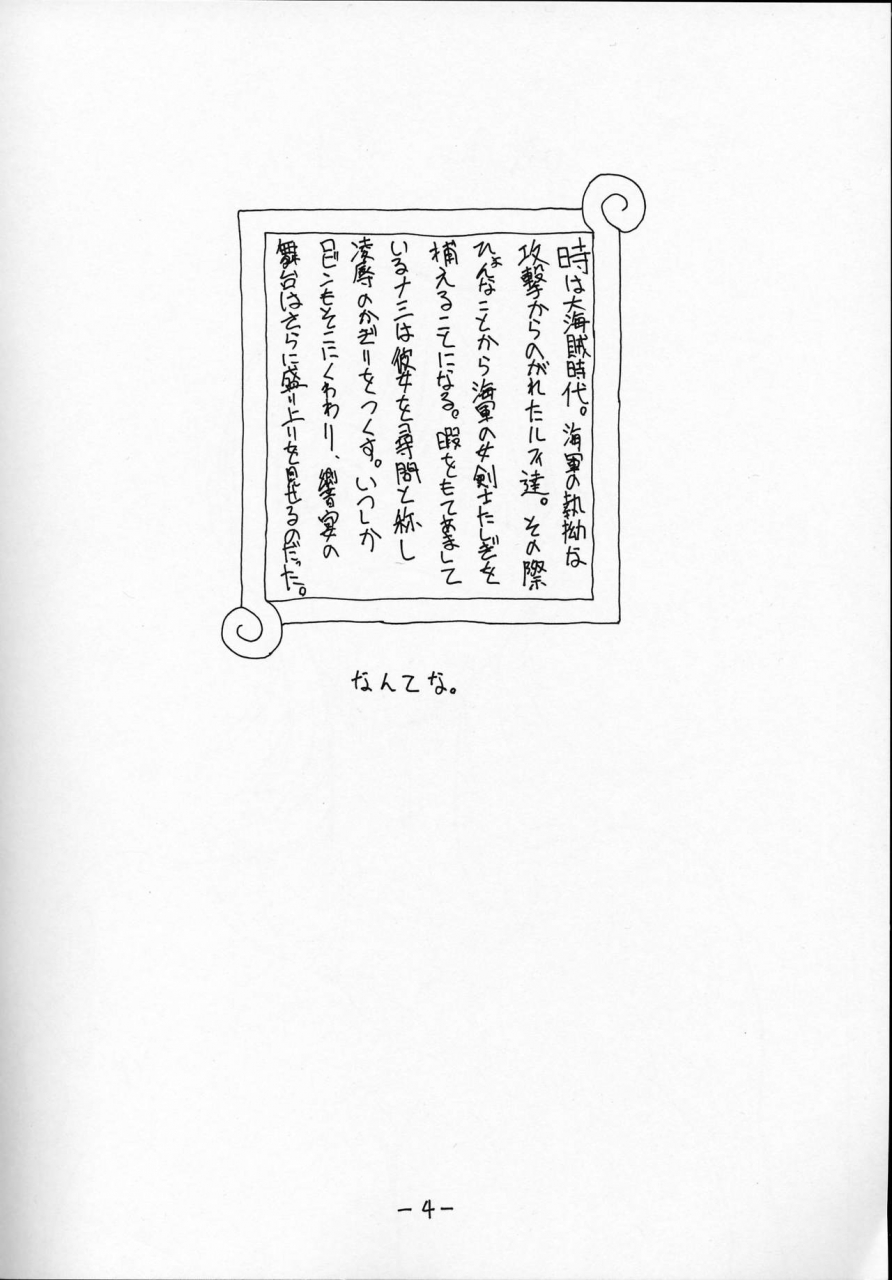 時は大海賊時代。海軍の執拗な
攻撃からのがれたルフィ達。その際
ひょんなことから海軍の女剣士たしぎを
捕えることになる。暇をもてあまして
いるナミは彼女を尋問と称し
凌辱のかぎりをつくす。いつしか
ロビンもそこにくわわり、饗宴の
舞台はさらに盛り上りを見せるのだった。
なんてな。
-4-